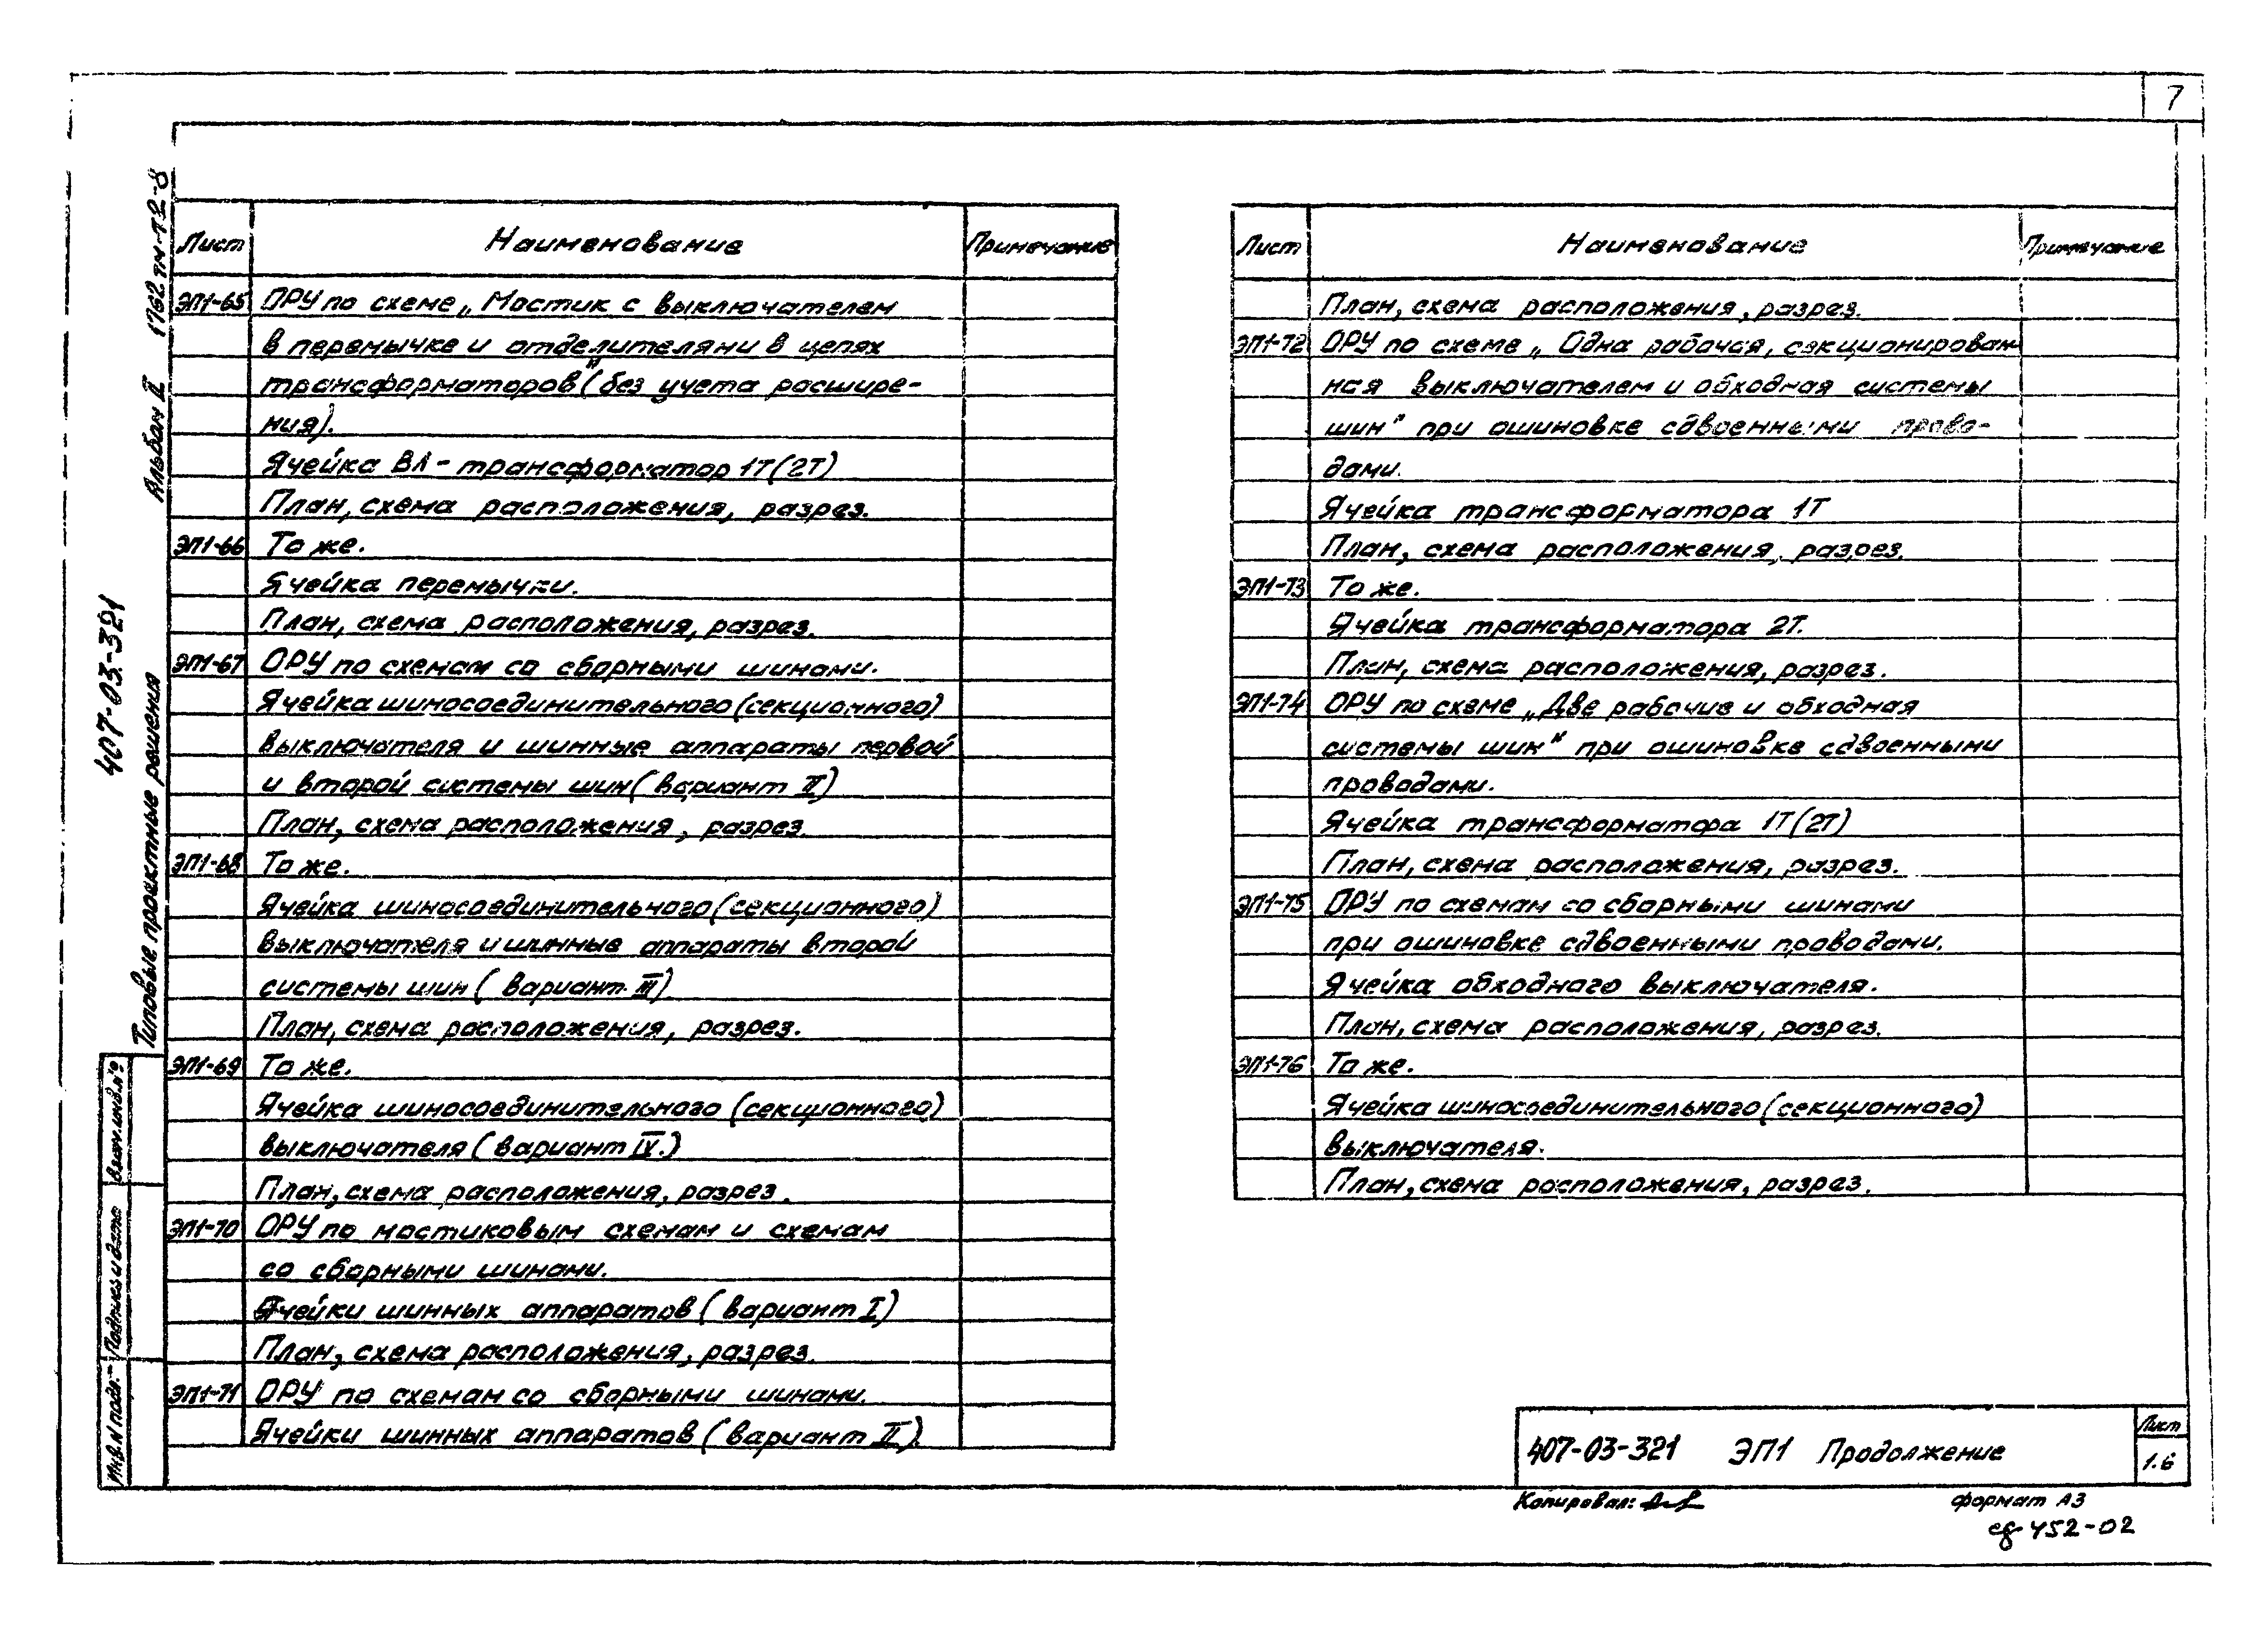 7
Лист Наименование Примечание
ЭП1-65 ОРУ по схеме „Мостик с выключателем
в перемычке и отделителями в цепях
трансформаторов" (без учета расшире-
ния).
Ячейка ВЛ - трансформатор 1Т(2Т)
План, схема расположения, разрез.
ЭП1-66 То же.
Ячейка перемычки.
План, схема расположения, разрез.
ЭП1-67 ОРУ по схемам со сборными шинами.
Ячейка шиносоединительного (секционного)
выключателя и шинные аппараты первой
и второй системы шин (вариант II)
План, схема расположения, разрез.
ЭП1-68 То же.
Ячейка шиносоединительного (секционного)
выключателя и шинные аппараты второй
системы шин (вариант III)
План, схема расположения, разрез.
ЭП1-69 То же.
Ячейка шиносоединительного (секционного)
выключателя (вариант IV.)
План, схема расположения, разрез.
ЭП1-70 ОРУ по мостиковым схемам и схемам
со сборными шинами.
Ячейки шинных аппаратов (вариант I)
План, схема расположения, разрез.
ЭП1-71 ОРУ по схемам со сборными шинами.
Ячейки шинных аппаратов (вариант II).
Лист Наименование Примечание
План, схема расположения, разрез.
ЭП1-72 ОРУ по схеме „Одна рабочая, секционирован
ная выключателем и обходная системы
шин" при ошиновке сдвоенными прово-
дами.
Ячейка трансформатора 1Т
План, схема расположения, разрез.
ЭП1-73 То же.
Ячейка трансформатора 2Т.
План, схема расположения, разрез.
ЭП1-74 ОРУ по схеме „Две рабочие и обходная
системы шин" при ошиновке сдвоенными
проводами.
Ячейка трансформатора 1Т(2Т)
План, схема расположения, разрез.
ЭП1-75 ОРУ по схемам со сборными шинами
при ошиновке сдвоенными проводами.
Ячейка обходного выключателя.
План, схема расположения, разрез.
ЭП1-76 То же.
Ячейка шиносоединительного (секционного)
выключателя.
План, схема расположения, разрез.
407-03-321
Типовые проектные решения Альбом II 1762тм-т2-8
Инв.N подл. Подпись и дата Взам.инв.N°
407-03-321 ЭП1 Продолжение
Лист
1.6
Копировал:
формат А3
452-02